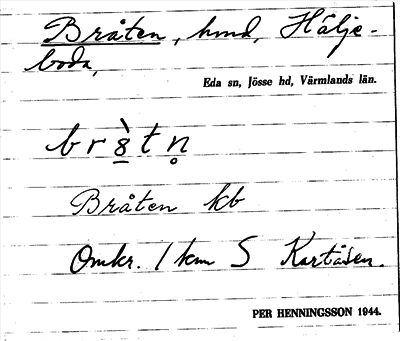 Bråten, hmd, Hälje-
boda,
Eda sn, Jösse hd, Värmlands län.
br8̲̀tn̥
Bråten kb
Omkr. 1 km S Kartåsen.
PER HENNINGSSON 1944.